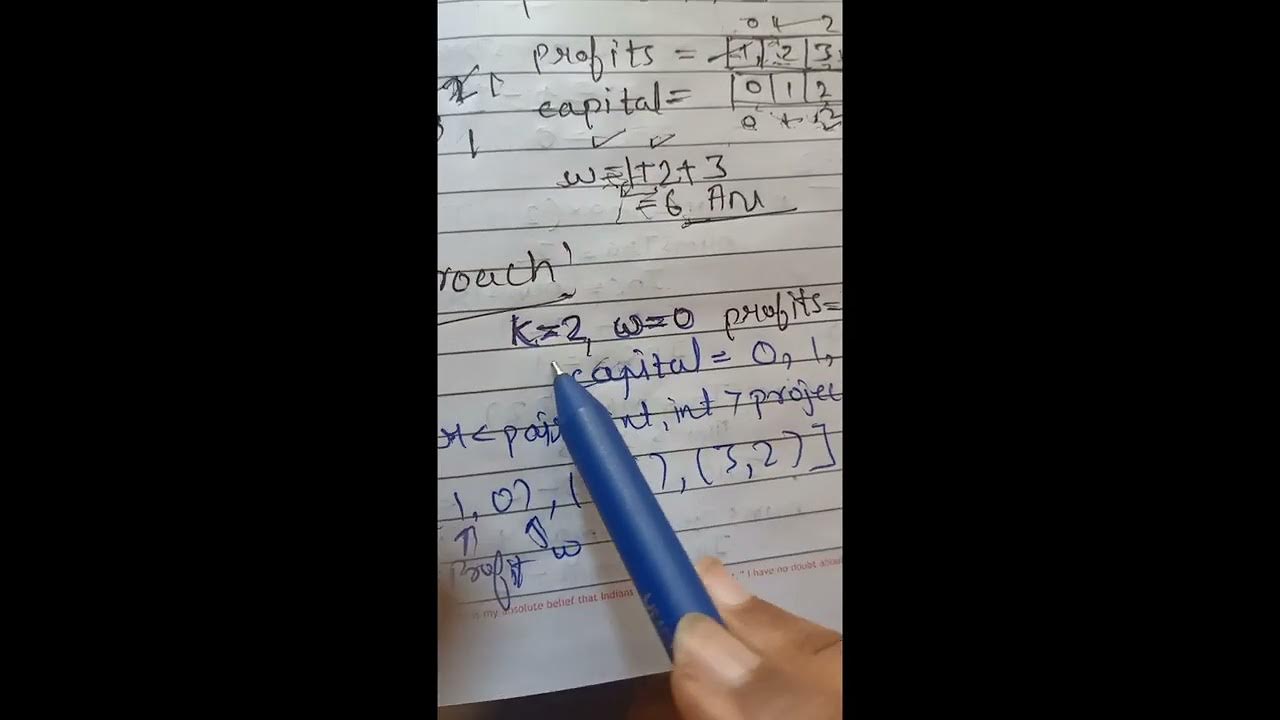 0 1 2
profits = 1, 2 3
capital = 0 1 2
1
w = 1+2+3
= 6 Ans
roach'
K=2, w=0 profits=
capital = 0, 1,
< pair nt, int > projec
1, 0), ( ), (3,2)]
Profit w
is my absolute belief that Indians " I have no doubt abou